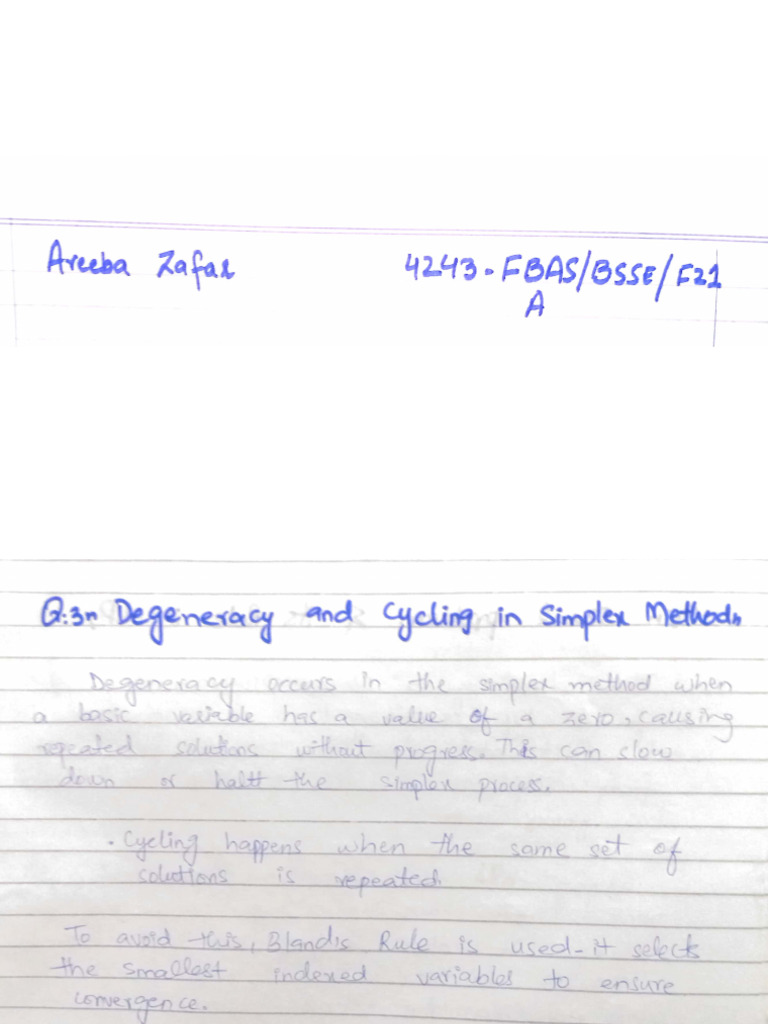 Areeba Zafar 4243-FBAS/BSSE/F21
A
Q:3" Degeneracy and Cycling in Simplex Method"
Degeneracy occurs in the simplex method when
a basic variable has a value of a zero, causing
repeated solutions without progress. This can slow
down or haltt the simplex process.
• Cycling happens when the same set of
solutions is repeated.
To avoid this, Bland's Rule is used-it selects
the smallest indexed variables to ensure
convergence.